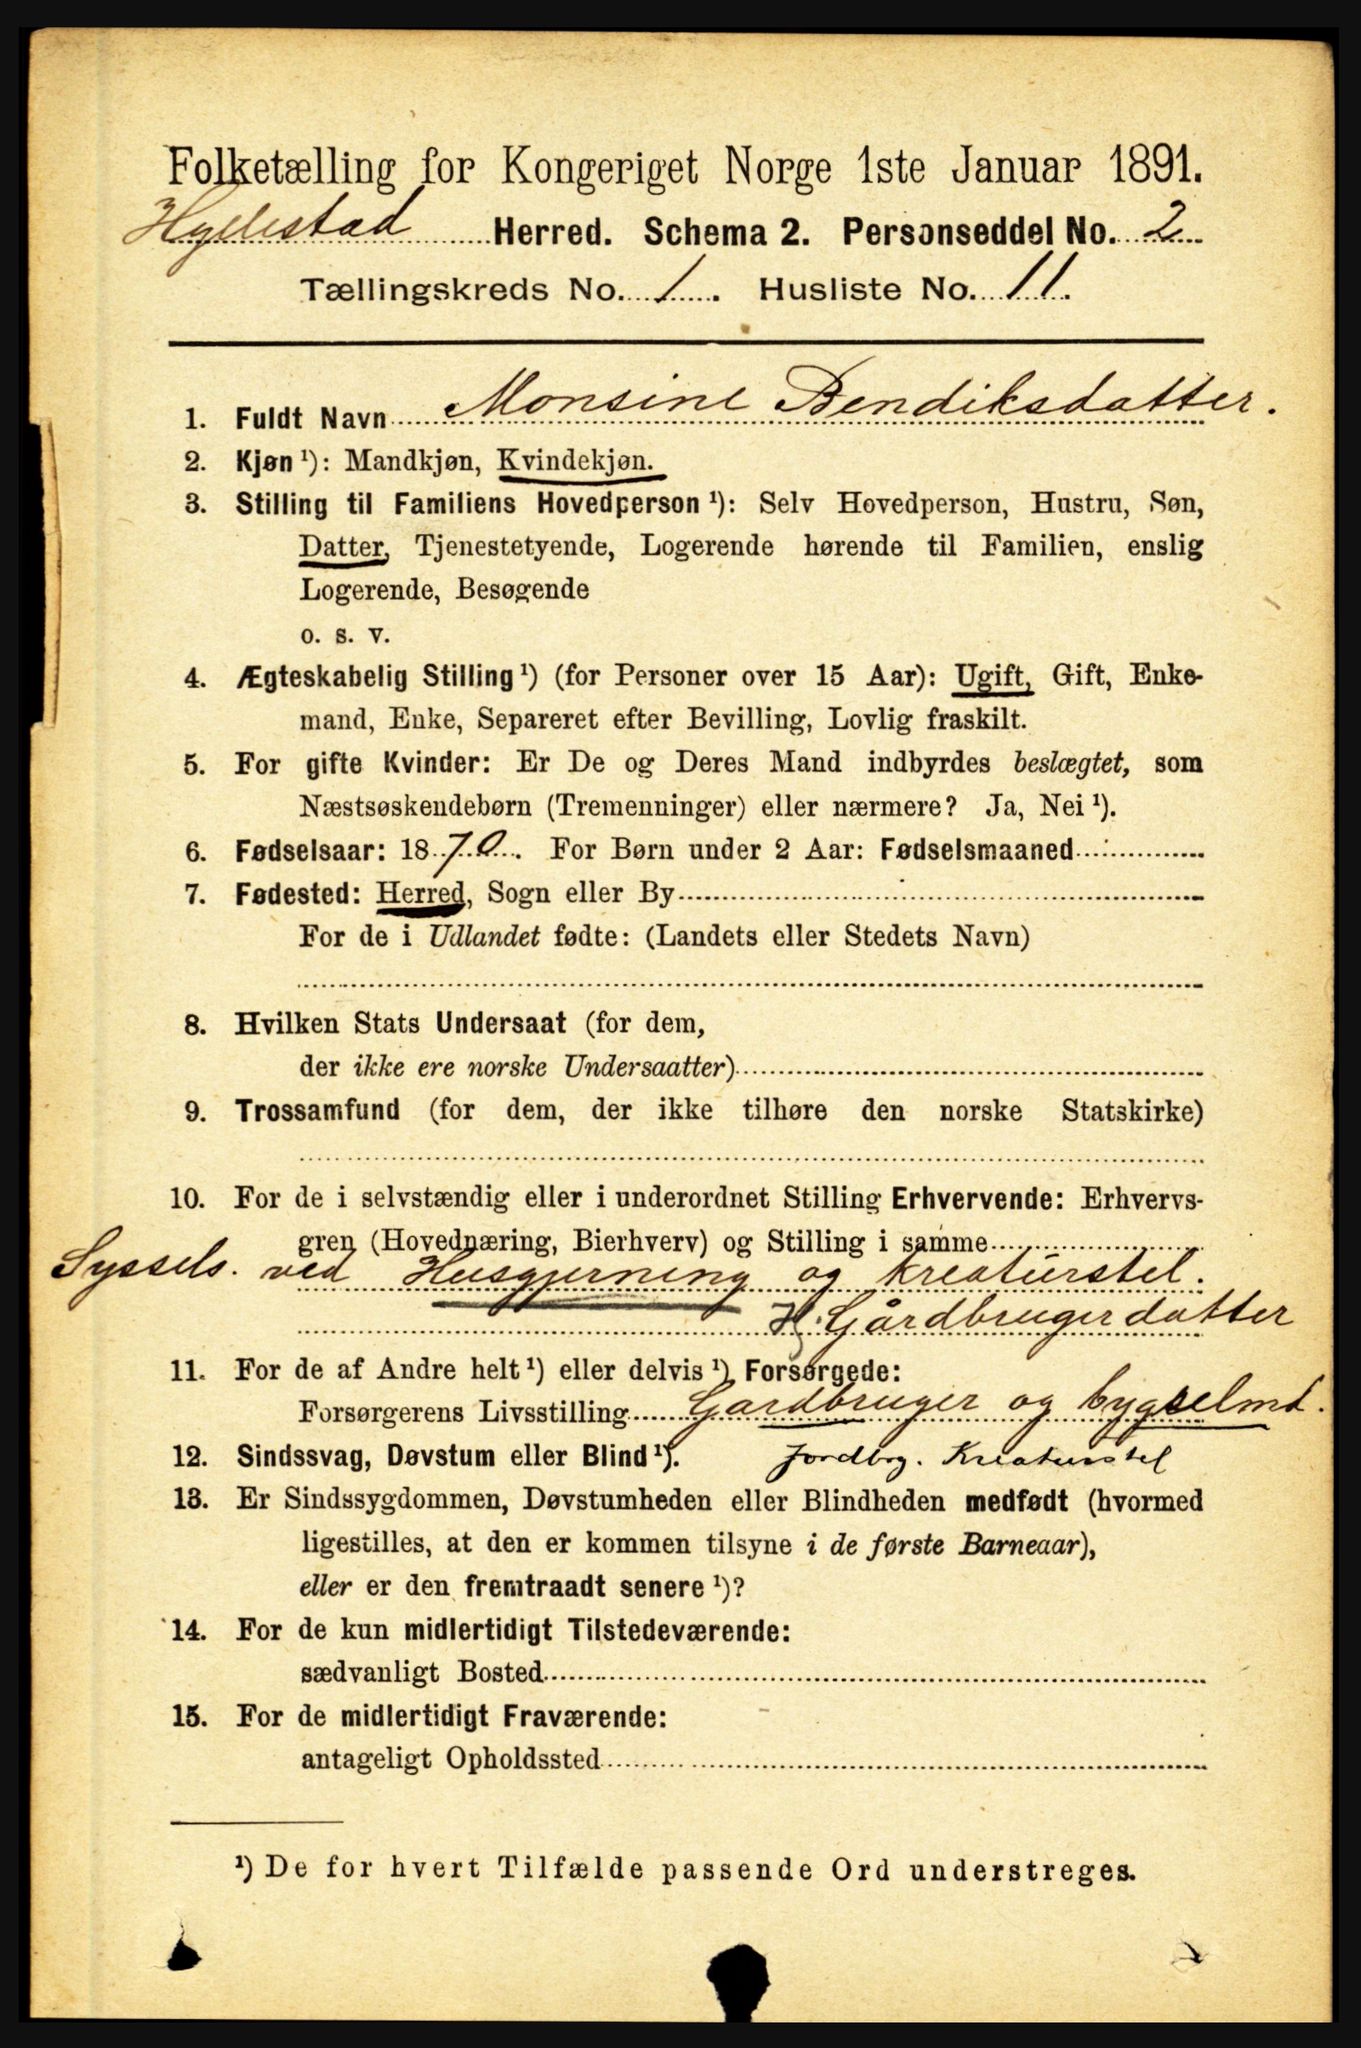 Folketælling for Kongeriget Norge 1ste Januar 1891.
Hyllestad Herred. Schema 2. Personseddel No. 2
Tællingskreds No. 1. Husliste No. 11.
1. Fuldt Navn Monsine Bendiksdatter.
2. Kjøn ¹): Mandkjøn, Kvindekjøn.
3. Stilling til Familiens Hovedperson ¹): Selv Hovedperson, Hustru, Søn,
Datter, Tjenestetyende, Logerende hørende til Familien, enslig
Logerende, Besøgende
o. s. v.
4. Ægteskabelig Stilling ¹) (for Personer over 15 Aar): Ugift, Gift, Enke-
mand, Enke, Separeret efter Bevilling, Lovlig fraskilt.
5. For gifte Kvinder: Er De og Deres Mand indbyrdes beslægtet, som
Næstsøskendebørn (Tremenninger) eller nærmere? Ja, Nei ¹).
6. Fødselsaar: 1870. For Børn under 2 Aar: Fødselsmaaned
7. Fødested: Herred, Sogn eller By
For de i Udlandet fødte: (Landets eller Stedets Navn)
8. Hvilken Stats Undersaat (for dem,
der ikke ere norske Undersaatter)
9. Trossamfund (for dem, der ikke tilhøre den norske Statskirke)
10. For de i selvstændig eller i underordnet Stilling Erhvervende: Erhvervs-
gren (Hovednæring, Bierhverv) og Stilling i samme
Syssels. ved Husgjerning og Kreaturstel.
Gårdbrugerdatter
11. For de af Andre helt ¹) eller delvis ¹) Forsørgede:
Forsørgerens Livsstilling Gardbruger og bygselmd.
12. Sindssvag, Døvstum eller Blind ¹). Jordbrg. Kreaturstel
13. Er Sindssygdommen, Døvstumheden eller Blindheden medfødt (hvormed
ligestilles, at den er kommen tilsyne i de første Barneaar),
eller er den fremtraadt senere ¹)?
14. For de kun midlertidigt Tilstedeværende:
sædvanligt Bosted
15. For de midlertidigt Fraværende:
antageligt Opholdssted
¹) De for hvert Tilfælde passende Ord understreges.